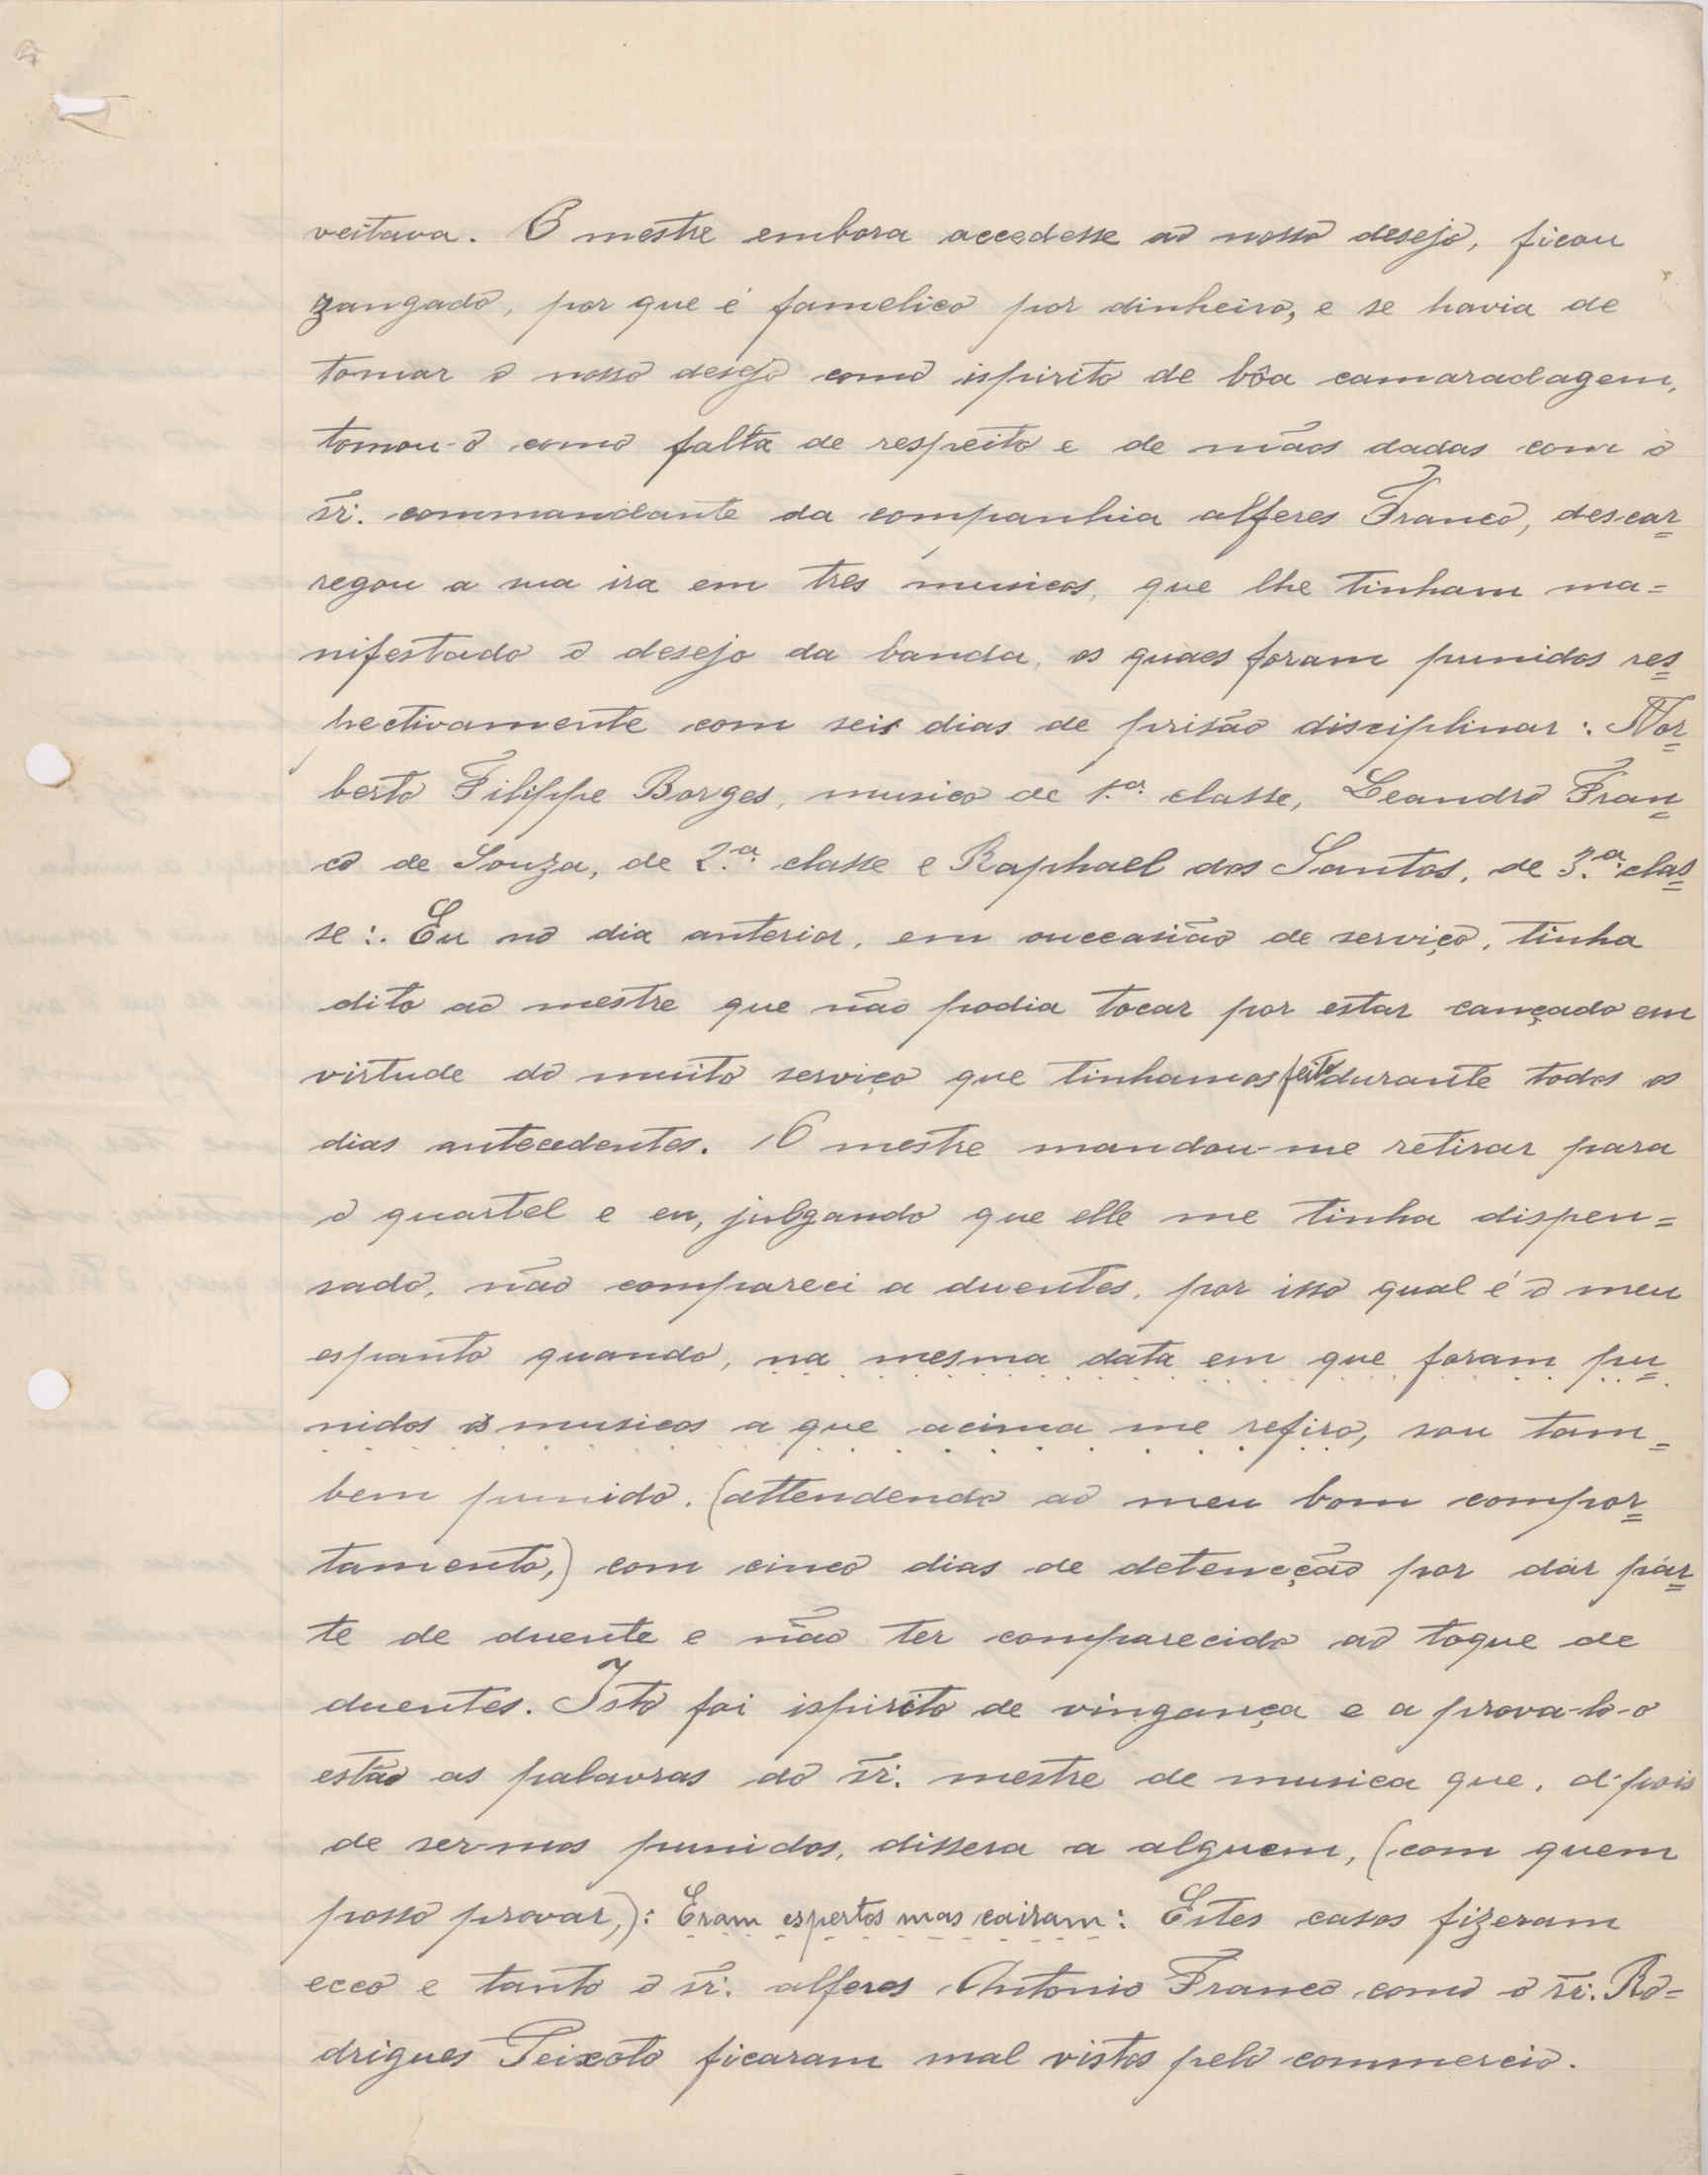 veitava. O mestre embora accedesse ao nosso desejo, ficou
zangado, por que é famelico por dinheiro, e se havia de
tomar o nosso desejo como ispirito de bôa camaradagem,
tomou-o como falta de respeito e de mãos dadas com o
sr. commandante da companhia alferes Franco, descar=
regou a sua ira em tres musicos, que lhe tinham ma=
nifestado o desejo da banda, os quaes foram punidos res=
pectivamente com seis dias de prisão disciplinar: Nor=
berto Filippe Borges, musico de 1.ª classe, Leandro Fran=
co de Souza, de 2.ª classe e Raphael dos Santos, de 3.ª clas=
se:. Eu no dia anterior, em occasião de serviço, tinha
dito ao mestre que não podia tocar por estar cançado em
virtude do muito serviço que tinhamos feito durante todos os
dias antecedentes. O mestre mandou-me retirar para
o quartel e eu, julgando que elle me tinha dispen=
sado, não compareci a duentes, por isso qual é o meu
espanto quando, na mesma data em que foram pu=
nidos os musicos a que acima me refiro, sou tam=
bem punido, (attendendo ao meu bom compor=
tamento,) com cinco dias de detencção por dár pár=
te de duente e não ter comparecido ao toque de
duentes. Isto foi ispirito de vingança e a prova-lo-o
estão as palavras do sr. mestre de musica que, depois
de sermos punidos, dissera a alguem, (com quem
posso provar,): Eram espertos mas cairam: Estes casos fizeram
ecco e tanto o sr. alferes Antonio Franco como o sr. Ro=
drigues Peixoto ficaram mal vistos pelo commercio.